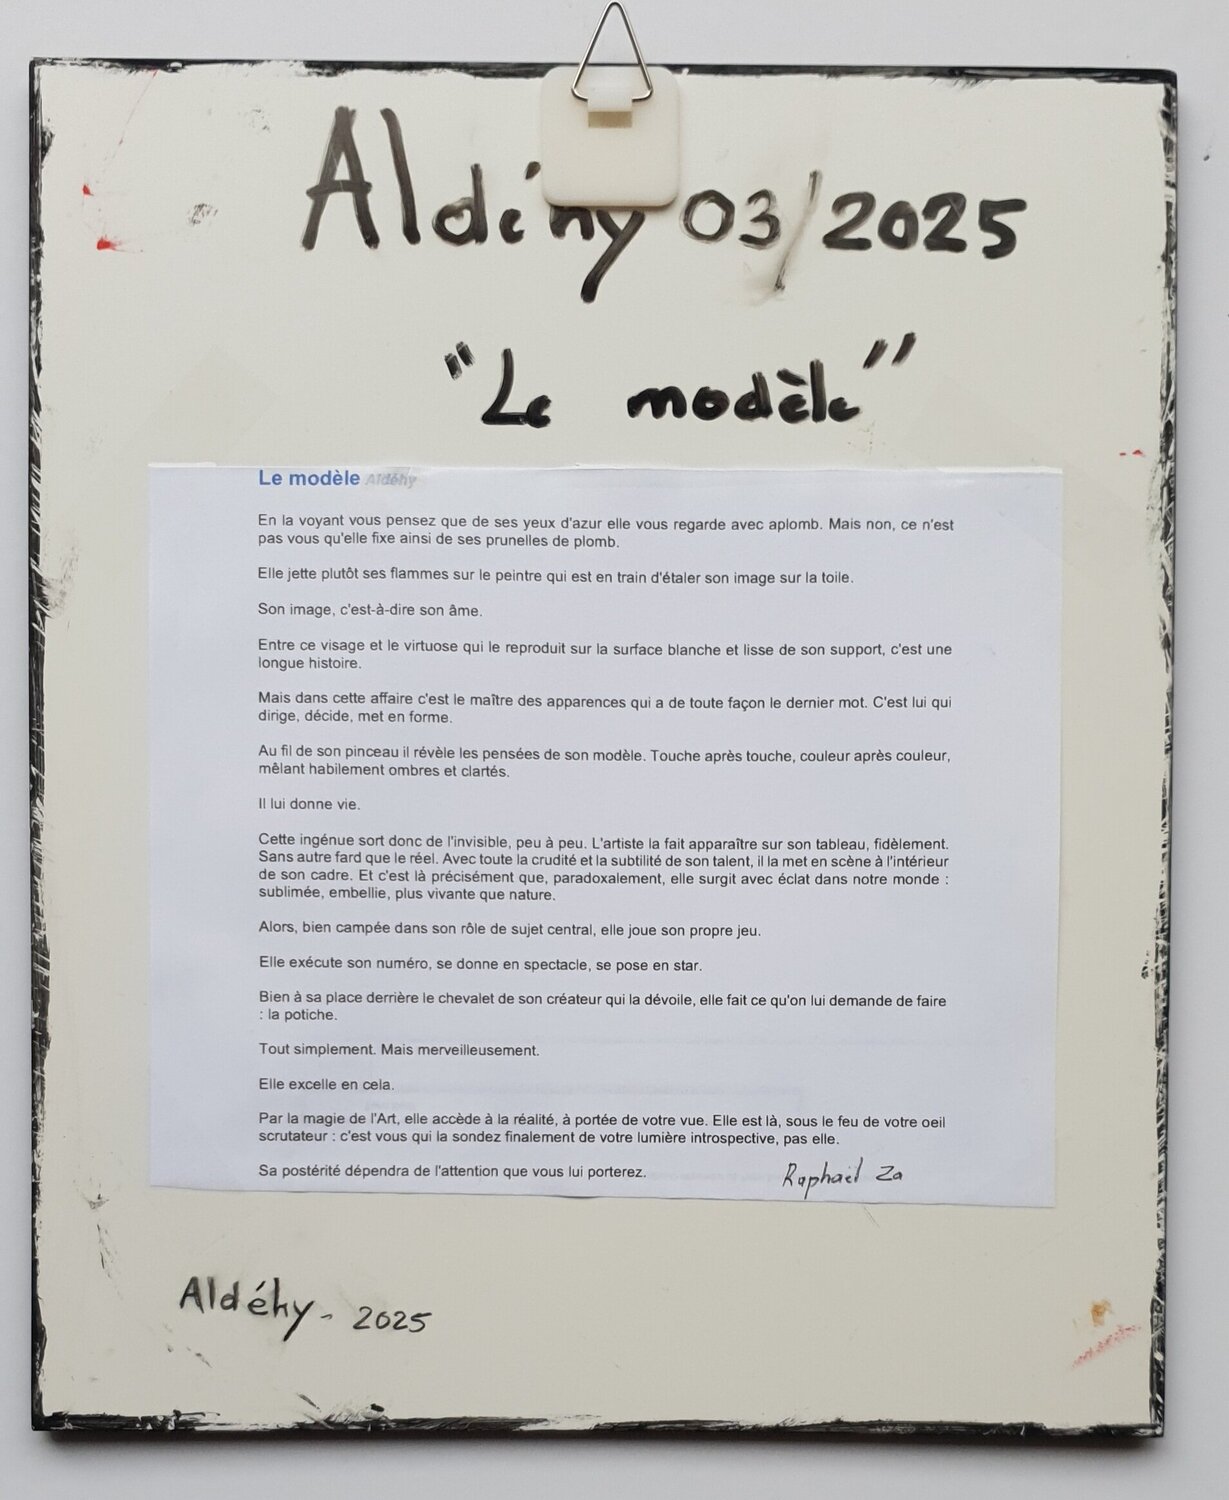 Aldéhy 03/2025
"Le modèle"
Le modèle Aldéhy
En la voyant vous pensez que de ses yeux d'azur elle vous regarde avec aplomb. Mais non, ce n'est
pas vous qu'elle fixe ainsi de ses prunelles de plomb.
Elle jette plutôt ses flammes sur le peintre qui est en train d'étaler son image sur la toile.
Son image, c'est-à-dire son âme.
Entre ce visage et le virtuose qui le reproduit sur la surface blanche et lisse de son support, c'est une
longue histoire.
Mais dans cette affaire c'est le maître des apparences qui a de toute façon le dernier mot. C'est lui qui
dirige, décide, met en forme.
Au fil de son pinceau il révèle les pensées de son modèle. Touche après touche, couleur après couleur,
mêlant habilement ombres et clartés.
Il lui donne vie.
Cette ingénue sort donc de l'invisible, peu à peu. L'artiste la fait apparaître sur son tableau, fidèlement.
Sans autre fard que le réel. Avec toute la crudité et la subtilité de son talent, il la met en scène à l'intérieur
de son cadre. Et c'est là précisément que, paradoxalement, elle surgit avec éclat dans notre monde :
sublimée, embellie, plus vivante que nature.
Alors, bien campée dans son rôle de sujet central, elle joue son propre jeu.
Elle exécute son numéro, se donne en spectacle, se pose en star.
Bien à sa place derrière le chevalet de son créateur qui la dévoile, elle fait ce qu'on lui demande de faire
: la potiche.
Tout simplement. Mais merveilleusement.
Elle excelle en cela.
Par la magie de l'Art, elle accède à la réalité, à portée de votre vue. Elle est là, sous le feu de votre oeil
scrutateur : c'est vous qui la sondez finalement de votre lumière introspective, pas elle.
Sa postérité dépendra de l'attention que vous lui porterez.
Raphaël Za
Aldéhy - 2025